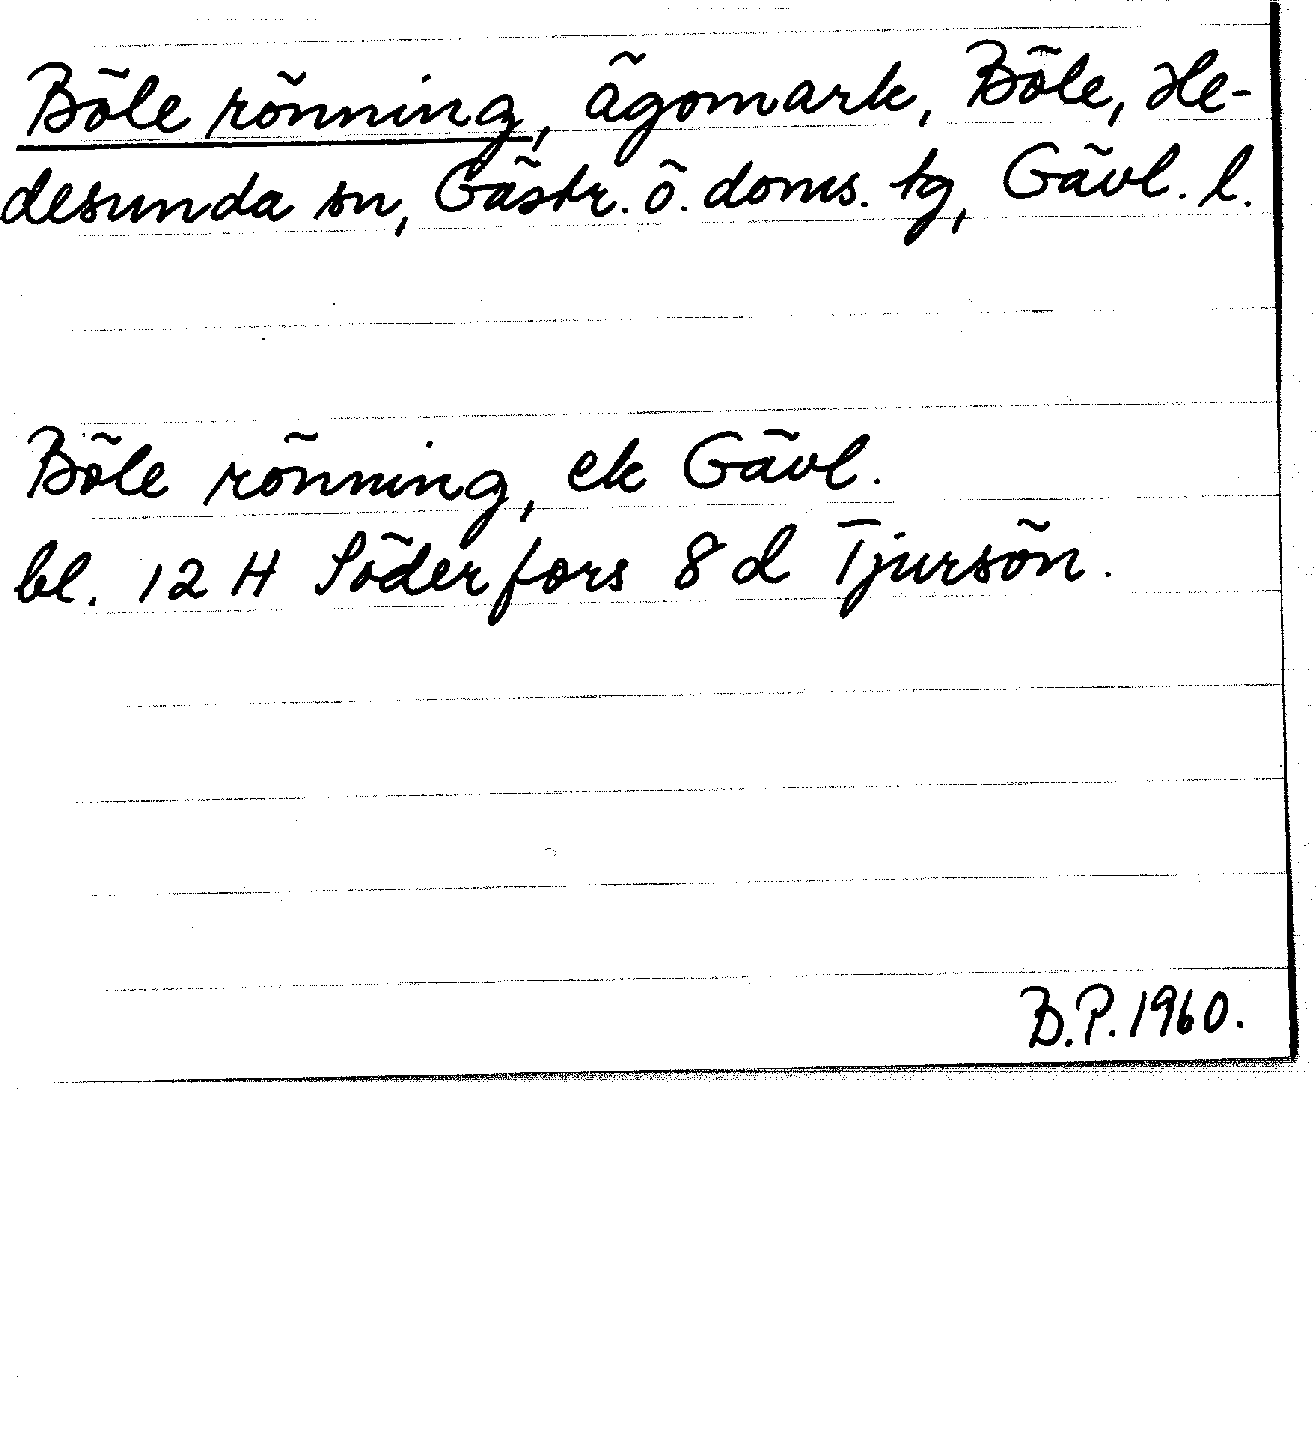 Böle rönning, ägomark, Böle, He-
desunda sn, Gästr. ö. doms. tg, Gävl. l.
Böle rönning, ek Gävl.
bl. 12 H Söderfors 8 d Tjursön.
B.P. 1960.